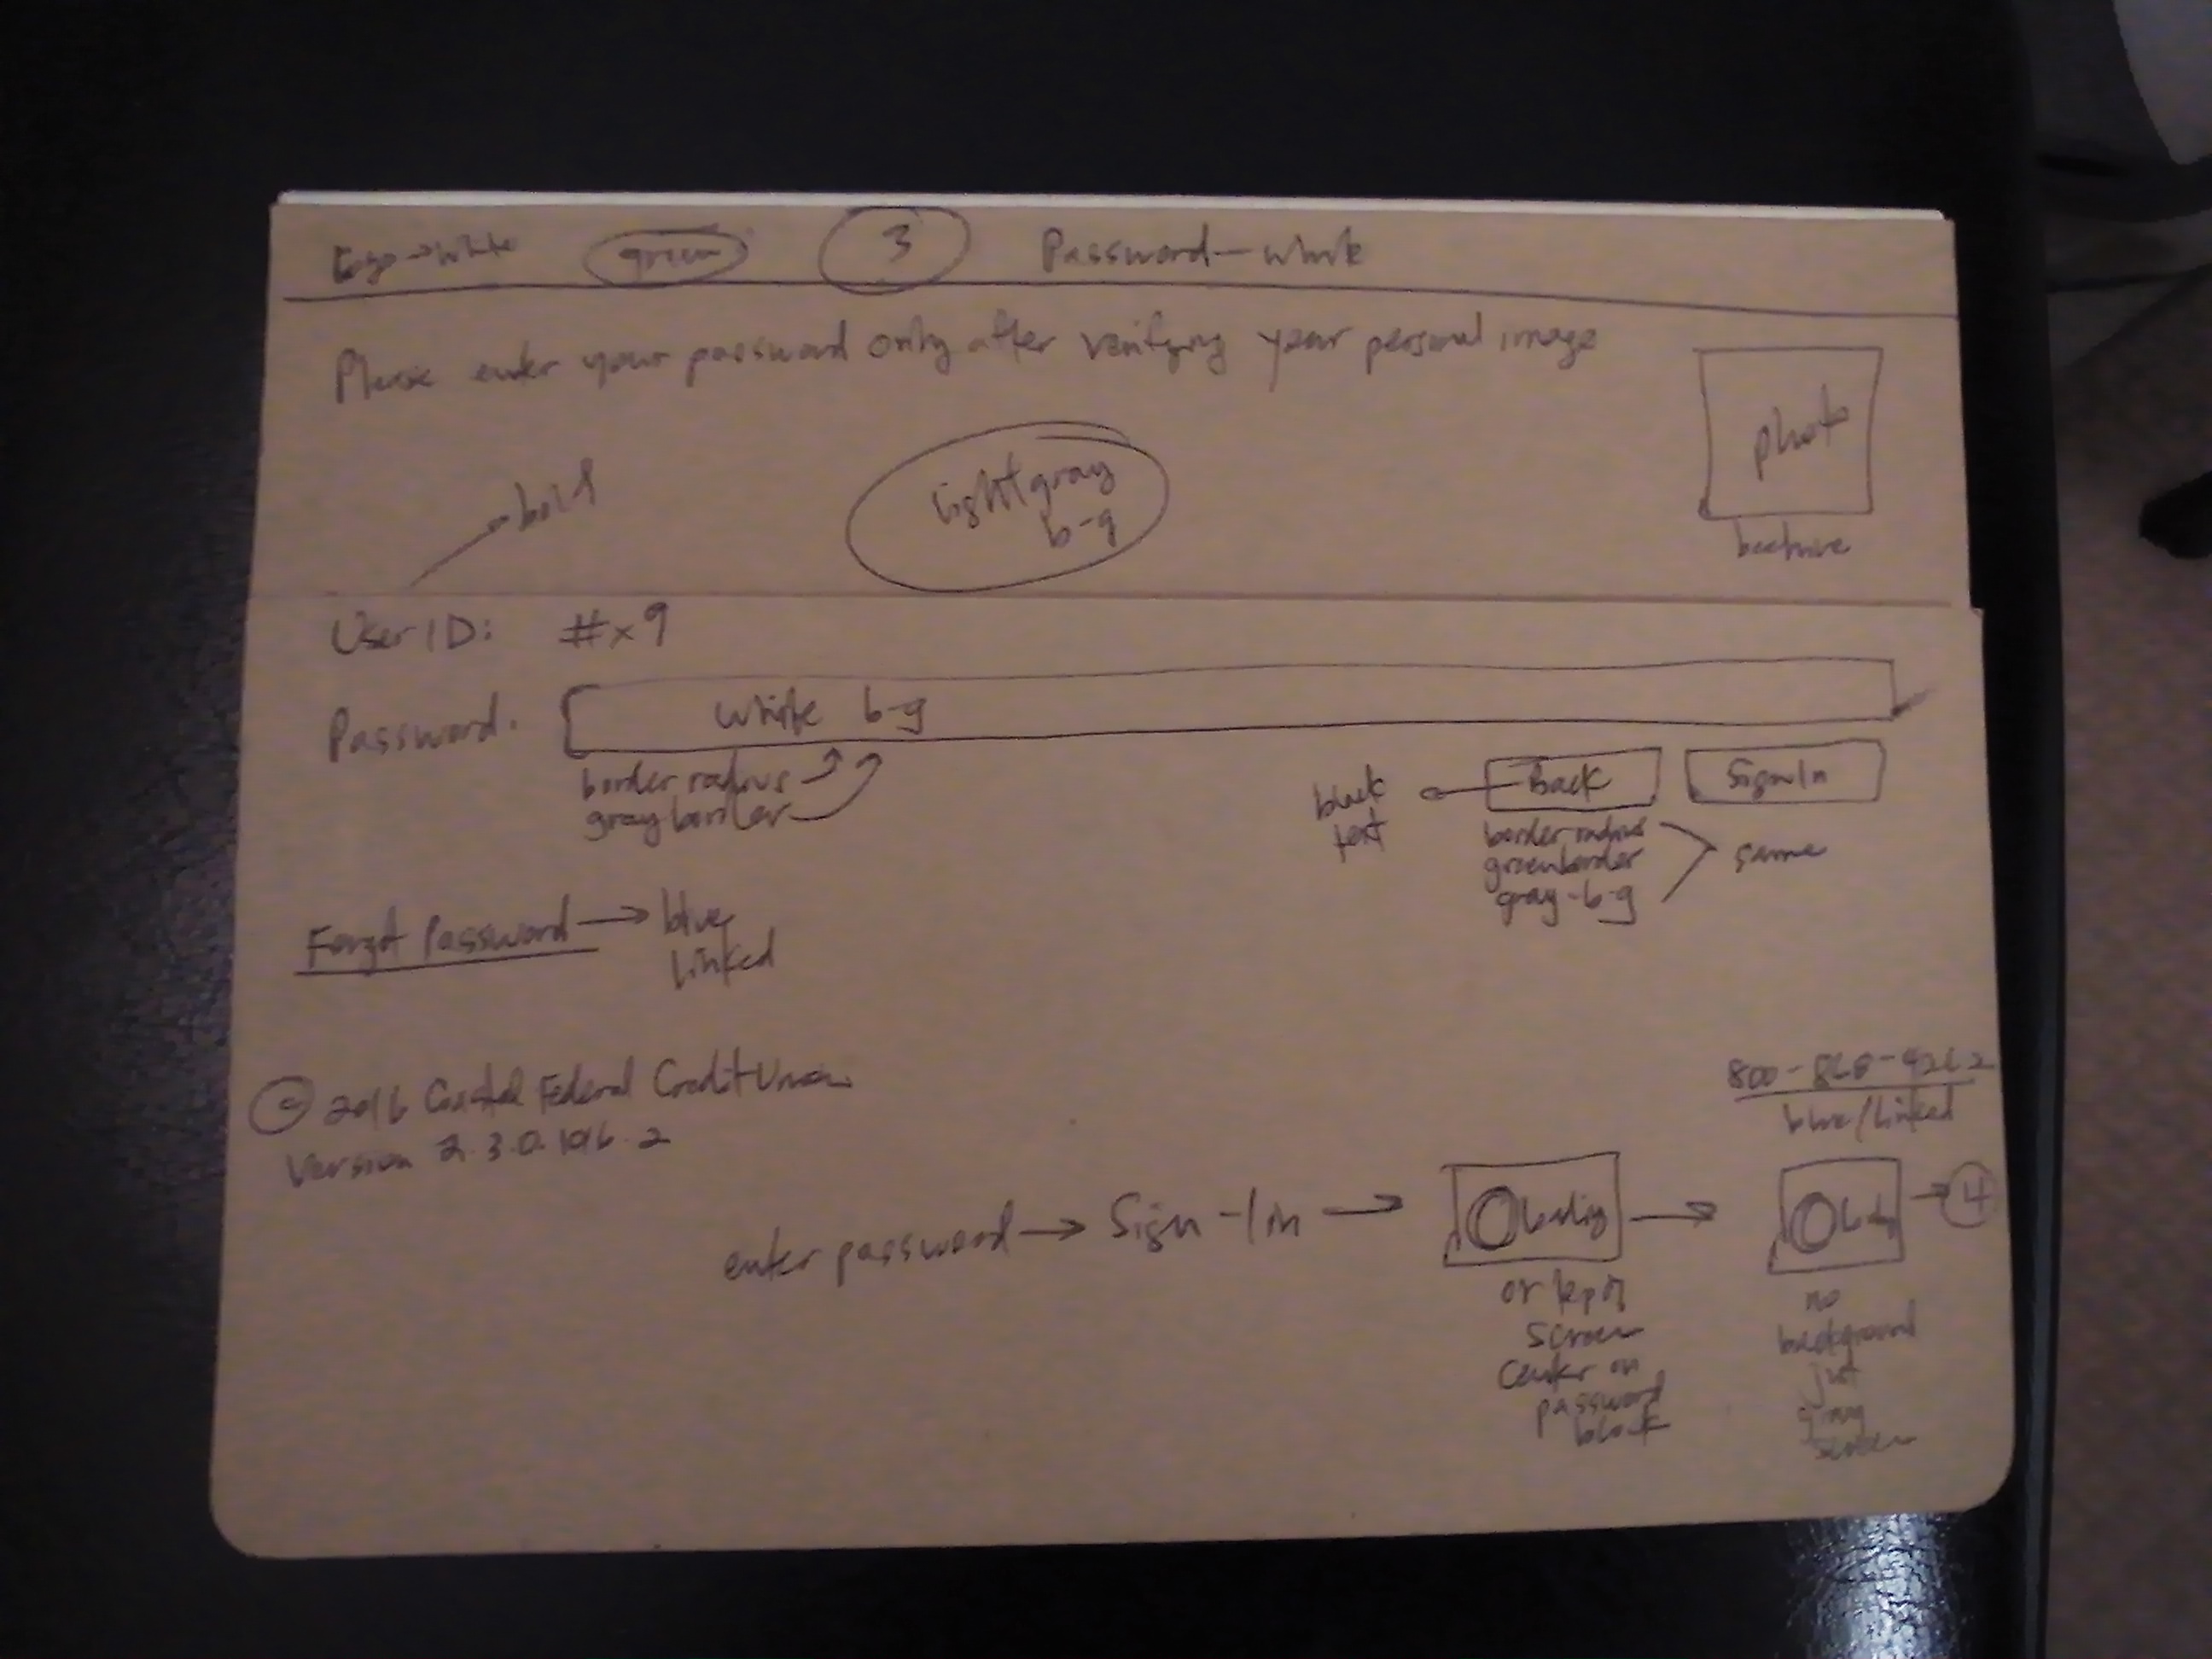 Logo → white green 3 Password - white
Please enter your password only after verifying your personal image
photo
beehive
bold
light gray
b-g
User ID: #x9
Password.
white b-g
border radius
gray border
black
text
Back
Sign In
border radius
green border
gray - b-g
same
Forgot Password → blue
linked
© 2016 Coastal Federal Credit Union
Version 2.3.0.1016.2
800-868-4262
blue/linked
enter password → Sign-In → loading → → 4
screen
center on
password
no
background
just
gray
screen